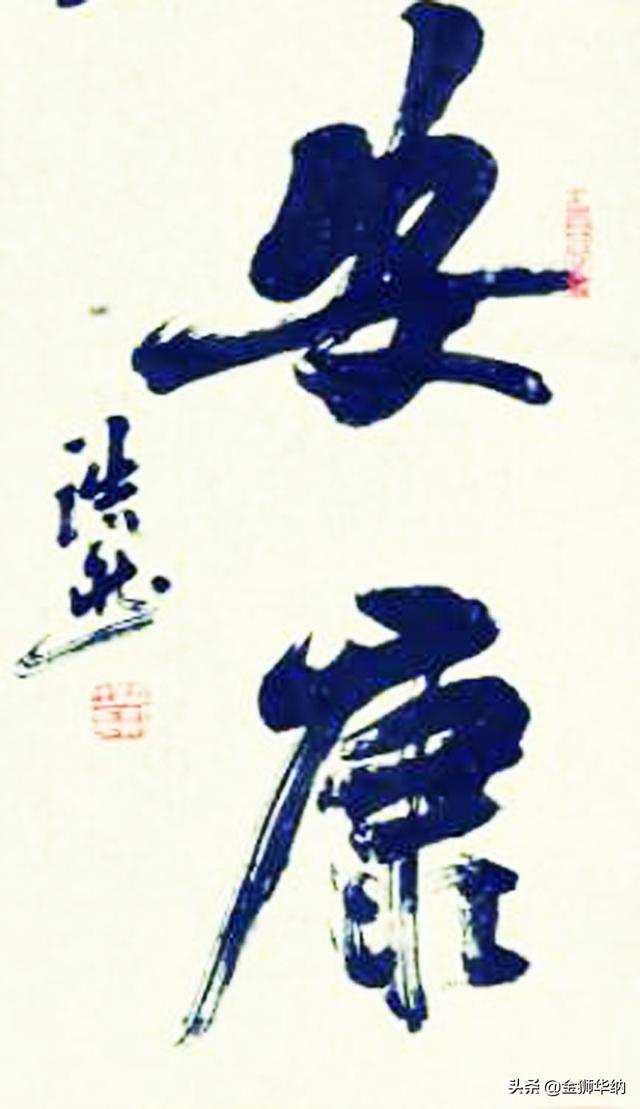 安
康
浩然
头条 @金狮华纳